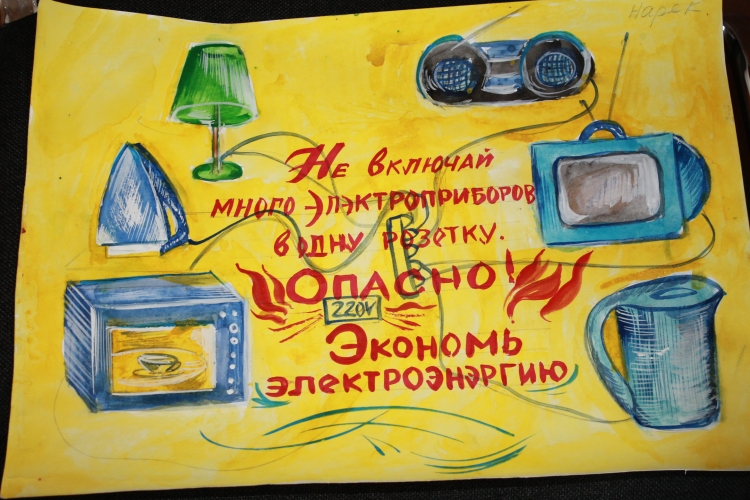 Нарек
Не включай
много элэктроприборов
в одну розетку.
Опасно!
220V
Экономь
электроэнэргию